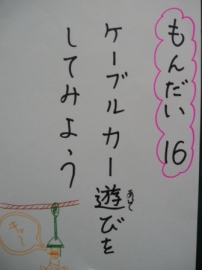 もんだい 16
ケーブルカー遊びを
あそ
してみよう
キャー